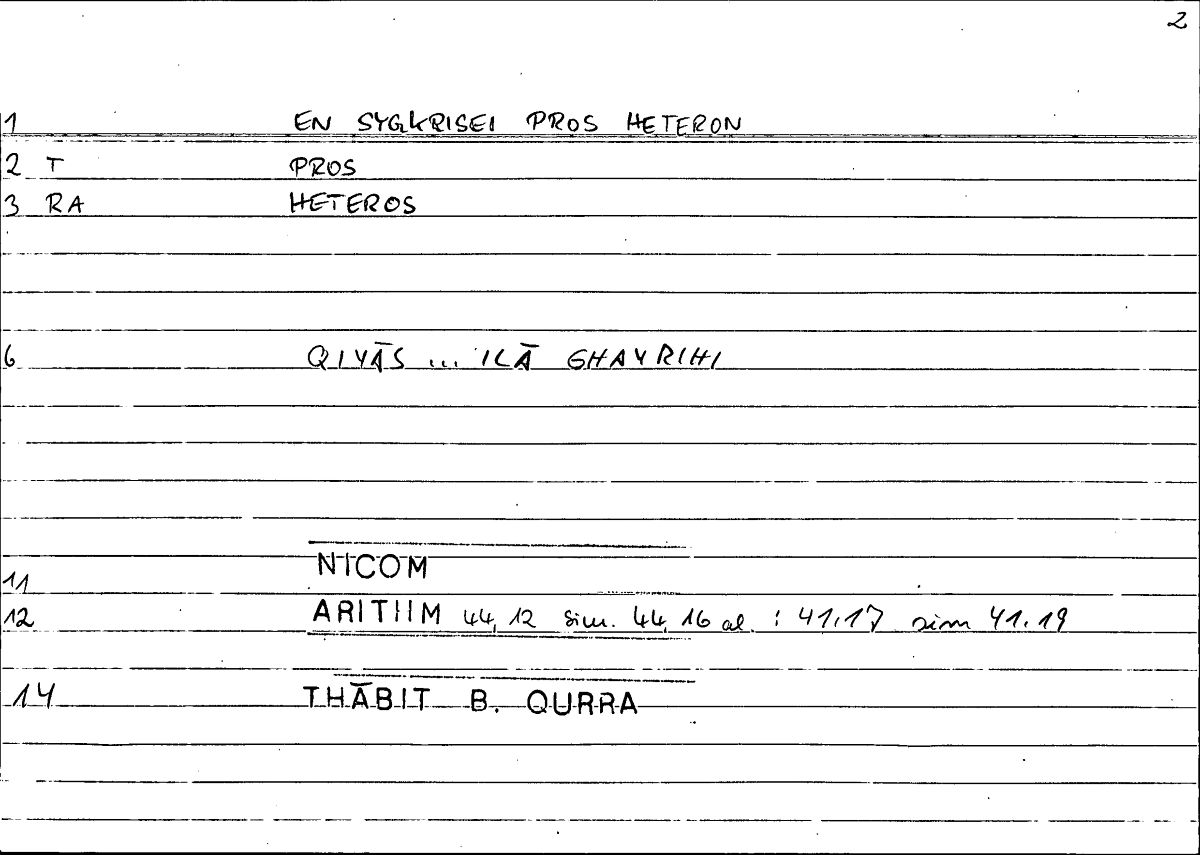 2
1 EN SYGKRISEI PROS HETERON
2 T PROS
3 RA HETEROS
6 QIYĀS ... 'ILĀ GHAYRIHI
11 NICOM
12 ARITIIM 44,12 sim. 44,16 al. : 41.17 sim 41.19
14 THĀBIT B. QURRA